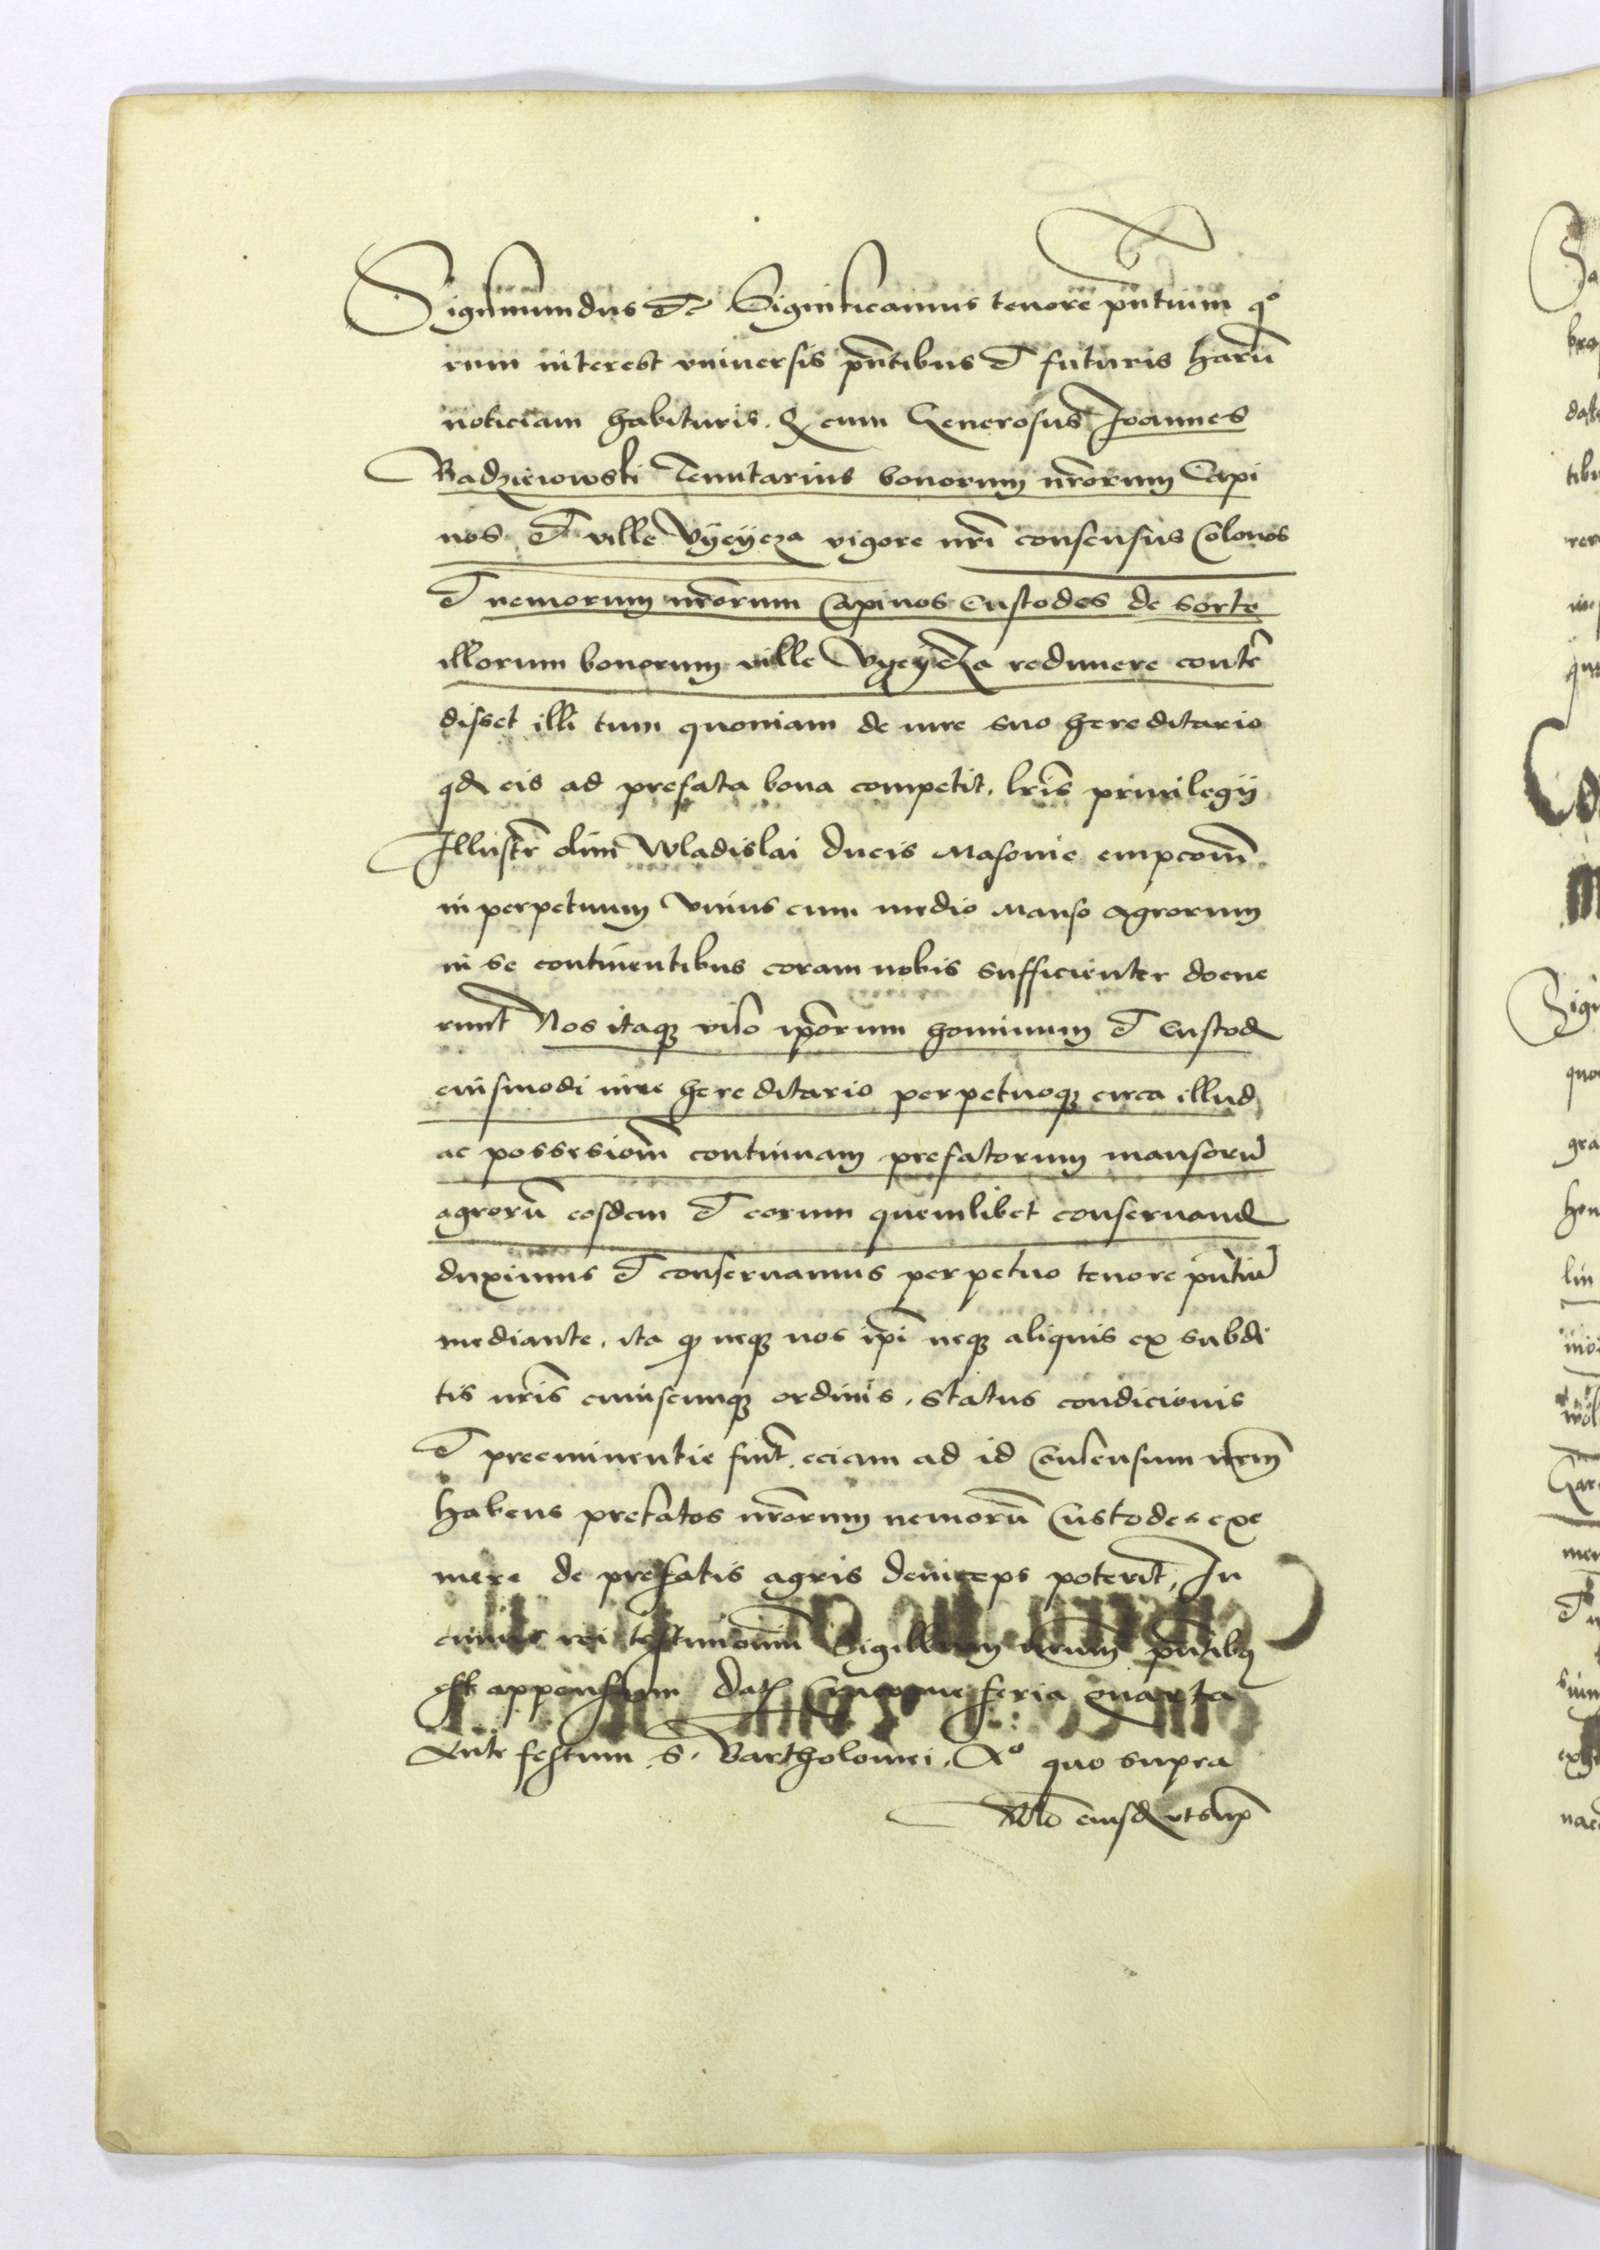 Sigismundus etc Significamus tenore pntium quo
rum interest vniversis pntibus et futuris harum
noticiam habituris. Q cum Generosus Joannes
Radzieiowski Tenutarius bonorum nrorum Capi
nos et ville Vyeycza vigore nri consensus Colonos
et nemorum nrorum Capinos Custodes de sorte
illorum bonorum ville Vyeycza redimere conten
disset illi tum quoniam de iure suo hereditario
qd eis ad prefata bona competit. lris privilegii
Illustr olim Wladislai ducis Masovie empcom
in perpetuum vnius cum medio Manso Agrorum
in se continentibus coram nobis sufficienter docue
runt Nos itaq viso ipsorum hominum et Custod
eiusmodi iure hereditario perpetuoq circa illud
ac possesionem continuam prefatorum mansorum
agrorum eosdem et eorum quemlibet conservand
duximus et conservamus perpetuo tenore pntium
mediante. ita q neq nos ipi neq aliquis ex subdi
tis nris cuiuscumq ordinis. Status condicionis
et preeminentie sint. eciam ad id Consensum nrm
habens prefatos nrorum nemorum Custodes exi
mere de prefatis agris deinceps poterit. In
cuius rei testimonium Sigillum nrum pntibus
est appensum Dat Cracovie feria quarta
Ante festum S. Bartholomei. Ao quo supra
Rlo eiusd vt supra